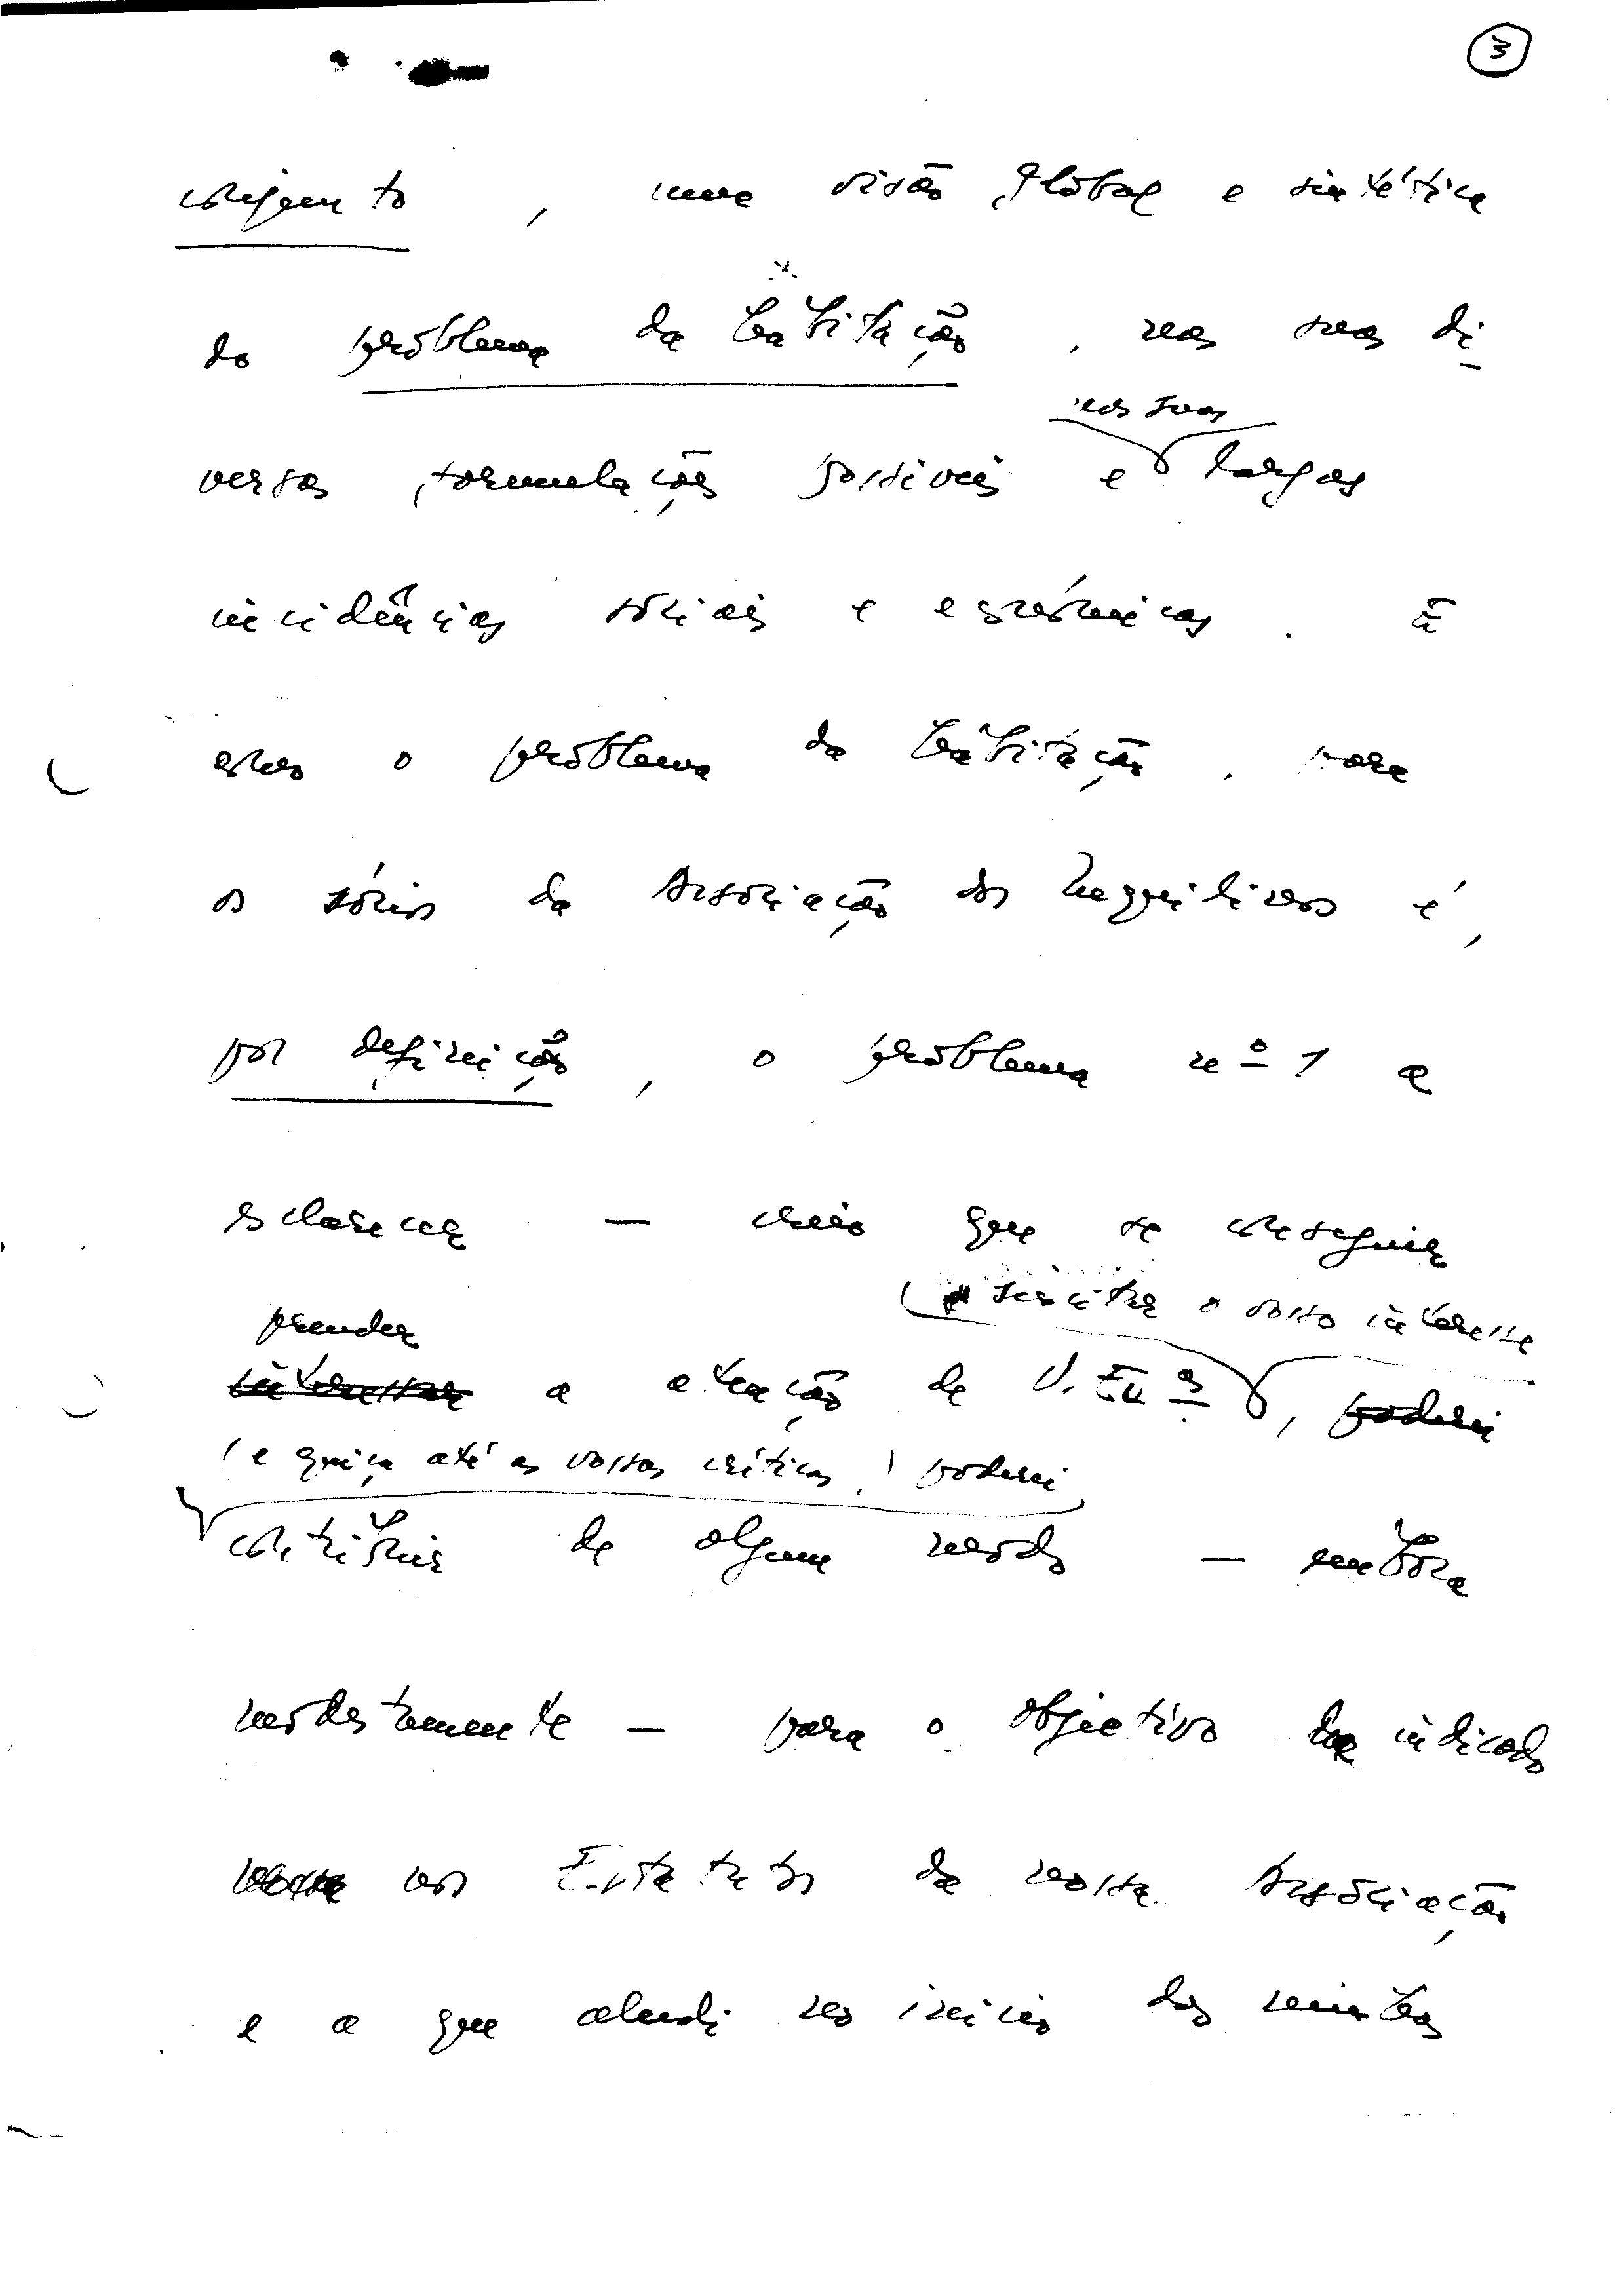 3
conjunto, uma visão global e sintética
do problema da habitação, nas suas di-
nas suas
versas formulações possíveis e largas
incidências sociais e económicas. E
como o problema da habitação, para
os sócios da Associação dos Inquilinos é,
por definição, o problema nº 1 a
esclarecer — creio que se conseguir
suscitar o vosso interesse
prender
interessar a atenção de V. Exas, poderei
(e quiça até as vossas críticas) poderei
contribuir de algum modo — embora
modestamente — para o objectivo indicado
nos Estatutos da nossa Associação
e a que aludi no início das minhas